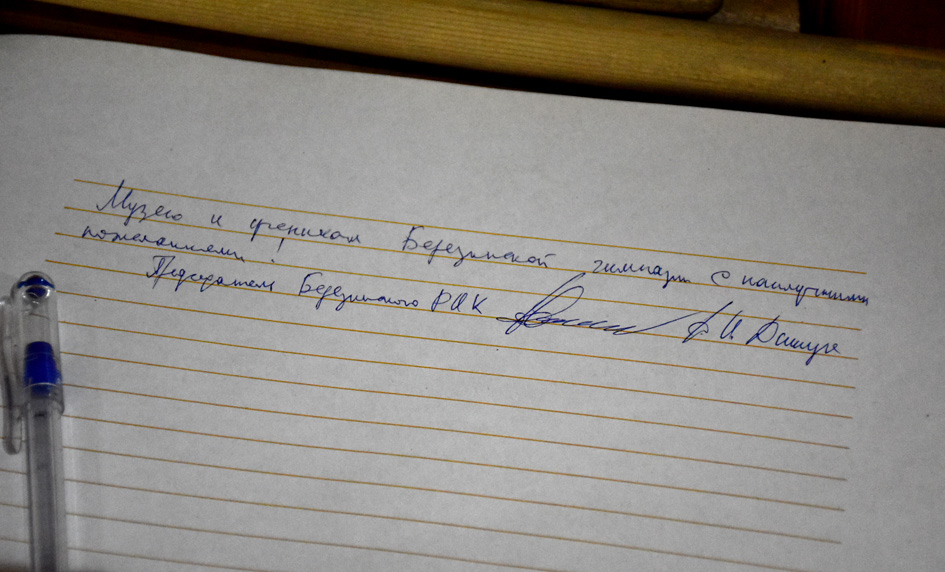 Музею и ученикам Березинской гимназии с наилучшими
пожеланиями!
Председатель Березинского РИК И.